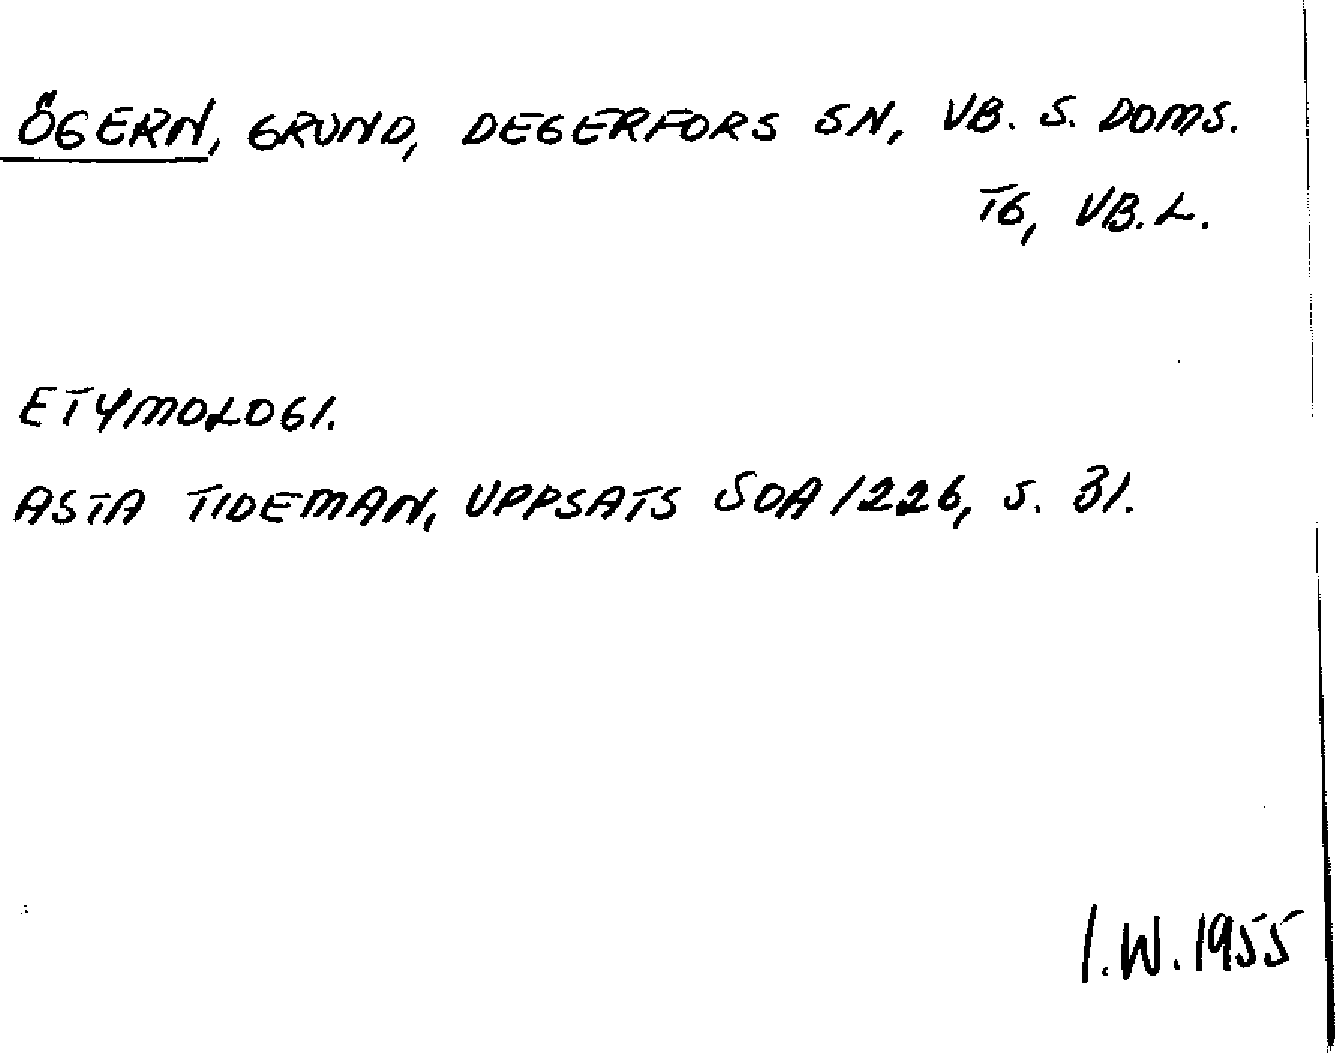 ÖGERN, GRUND, DEGERFORS SN, VB. S. DOMS.
TG, VB.L.
ETYMOLOGI.
ASTA TIDEMAN, UPPSATS SOA 1226, S. 31.
I.W. 1955